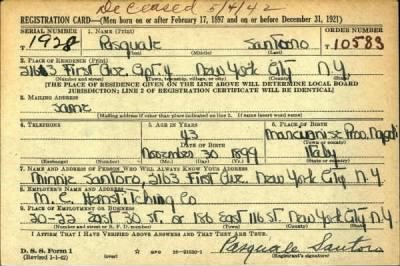 Deceased 5/4/42
REGISTRATION CARD—(Men born on or after February 17, 1897 and on or before December 31, 1921)
SERIAL NUMBER 1. NAME (Print) ORDER NUMBER
1928 Pasquale Santoro 10583
(First) (Middle) (Last)
2. PLACE OF RESIDENCE (Print)
2163 First Ave Apt 4 New York City N.Y
(Number and street) (Town, township, village, or city) (County) (State)
[THE PLACE OF RESIDENCE GIVEN ON THE LINE ABOVE WILL DETERMINE LOCAL BOARD
JURISDICTION; LINE 2 OF REGISTRATION CERTIFICATE WILL BE IDENTICAL]
3. MAILING ADDRESS
Same
[Mailing address if other than place indicated on line 2. If same insert word same]
4. TELEPHONE 5. AGE IN YEARS 6. PLACE OF BIRTH
43
DATE OF BIRTH (Town or county)
November 30 1899 Italy
(Exchange) (Number) (Mo.) (Day) (Yr.) (State or country)
7. NAME AND ADDRESS OF PERSON WHO WILL ALWAYS KNOW YOUR ADDRESS
Minnie Santoro, 2163 First Ave. New York City N.Y
8. EMPLOYER'S NAME AND ADDRESS
M. C. Hemstitching Co
9. PLACE OF EMPLOYMENT OR BUSINESS
30-22 East 30 St. or 156 East 116 St. New York City N.Y
(Number and street or R. F. D. number) (Town) (County) (State)
I AFFIRM THAT I HAVE VERIFIED ABOVE ANSWERS AND THAT THEY ARE TRUE.
D. S. S. Form 1
(Revised 1-1-42) GPO 16—21630-1 Pasquale Santoro
(Registrant's signature)